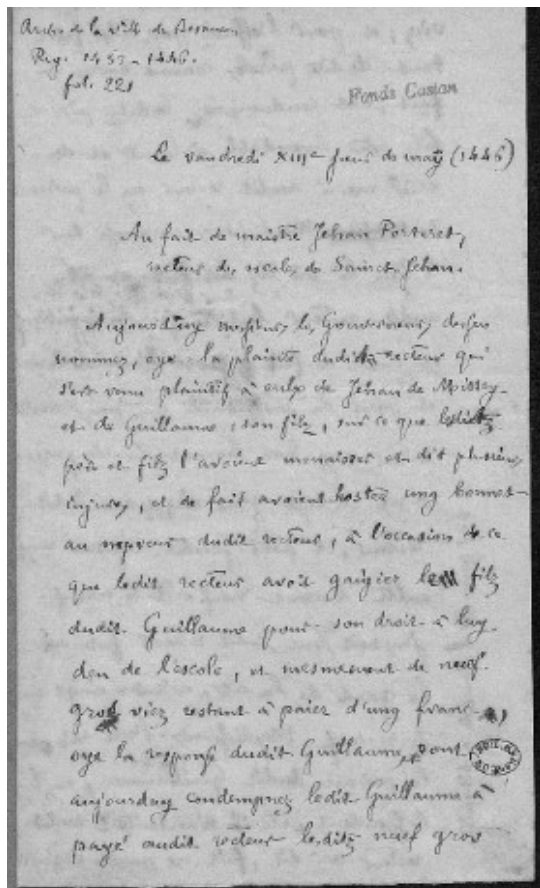 Archv. de la ville de Besançon
Reg. 1453-1446.
fol. 221
Fonds Castan
Le vendredi XIIIe jour de may (1446)
Au fait de maistre Jehan Porteret,
recteur des escoles de Sainct-Jehan.
Aujourd'uy messieurs les Gouverneurs dessus
nommez, oye la plainte dudit recteur qui
s'est venu plaintif à eulx de Jehan de Moissey
et de Guillaume, son filz, sur ce que lesdictz
père et filz l'avoient menaisser et dit plusieurs
injures, et de fait avoient hostez ung bonnet
au nepveur dudit recteur, à l'occasion de ce
que ledit recteur avoit gaigier le filz
dudit Guillaume pour son droit à luy
deu de l'escole, et mesmement de neuf
gros viez restant à paier d'ung franc,
oye la response dudit Guillaume, sont
aujourduy condempnez ledit Guillaume à
payé audit recteur lesditz neuf gros